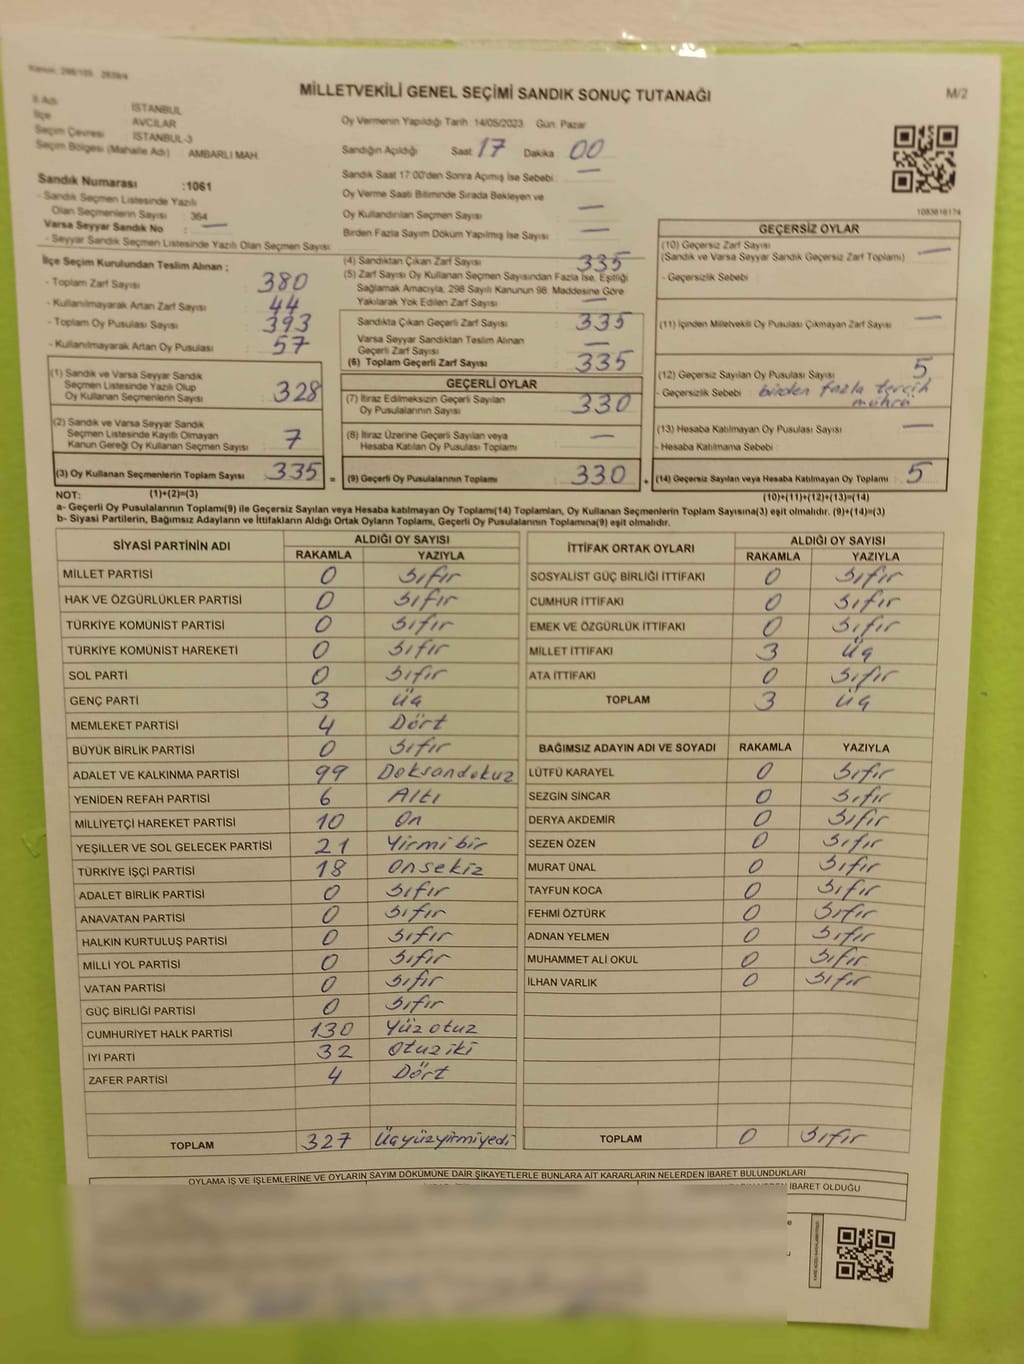 MİLLETVEKİLİ GENEL SEÇİMİ SANDIK SONUÇ TUTANAĞI
M/2
İl Adı İSTANBUL
İlçe AVCILAR
Seçim Çevresi İSTANBUL-3
Seçim Bölgesi (Mahalle Adı) AMBARLI MAH.
Sandık Numarası :1061
- Sandık Seçmen Listesinde Yazılı
Olan Seçmenlerin Sayısı : 364
Varsa Seyyar Sandık No —
- Seyyar Sandık Seçmen Listesinde Yazılı Olan Seçmen Sayısı:
Oy Vermenin Yapıldığı Tarih :14/05/2023 Gün: Pazar
Sandığın Açıldığı Saat 17 Dakika 00
Sandık Saat 17:00'den Sonra Açımış İse Sebebi : —
Oy Verme Saati Bitiminde Sırada Bekleyen ve
Oy Kullandırılan Seçmen Sayısı —
Birden Fazla Sayım Döküm Yapılmış İse Sayısı —
1083818174
İlçe Seçim Kurulundan Teslim Alınan ;
- Toplam Zarf Sayısı 380
- Kullanılmayarak Artan Zarf Sayısı 44
- Toplam Oy Pusulası Sayısı 393
- Kullanılmayarak Artan Oy Pusulası 57
(1) Sandık ve Varsa Seyyar Sandık
Seçmen Listesinde Yazılı Olup
Oy Kullanan Seçmenlerin Sayısı 328
(2) Sandık ve Varsa Seyyar Sandık
Seçmen Listesinde Kayıtlı Olmayan
Kanun Gereği Oy Kullanan Seçmen Sayısı 7
(3) Oy Kullanan Seçmenlerin Toplam Sayısı 335 =
(4) Sandıktan Çıkan Zarf Sayısı 335
(5) Zarf Sayısı Oy Kullanan Seçmen Sayısından Fazla İse, Eşitliği
Sağlamak Amacıyla, 298 Sayılı Kanunun 98. Maddesine Göre
Yakılarak Yok Edilen Zarf Sayısı —
Sandıkta Çıkan Geçerli Zarf Sayısı 335
Varsa Seyyar Sandıktan Teslim Alınan
Geçerli Zarf Sayısı —
(6) Toplam Geçerli Zarf Sayısı 335
GEÇERLİ OYLAR
(7) İtiraz Edilmeksizin Geçerli Sayılan
Oy Pusulalarının Sayısı 330
(8) İtiraz Üzerine Geçerli Sayılan veya
Hesaba Katılan Oy Pusulası Toplamı —
(9) Geçerli Oy Pusulalarının Toplamı 330 +
GEÇERSİZ OYLAR
(10) Geçersiz Zarf Sayısı
(Sandık ve Varsa Seyyar Sandık Geçersiz Zarf Toplamı) —
- Geçersizlik Sebebi :
(11) İçinden Milletvekili Oy Pusulası Çıkmayan Zarf Sayısı —
(12) Geçersiz Sayılan Oy Pusulası Sayısı 5
- Geçersizlik Sebebi : birden fazla tercih
mührü
(13) Hesaba Katılmayan Oy Pusulası Sayısı —
- Hesaba Katılmama Sebebi :
(14) Geçersiz Sayılan veya Hesaba Katılmayan Oy Toplamı 5
NOT: (1)+(2)=(3)
(10)+(11)+(12)+(13)=(14)
a- Geçerli Oy Pusulalarının Toplamı(9) ile Geçersiz Sayılan veya Hesaba katılmayan Oy Toplamı(14) Toplamları, Oy Kullanan Seçmenlerin Toplam Sayısına(3) eşit olmalıdır. (9)+(14)=(3)
b- Siyasi Partilerin, Bağımsız Adayların ve İttifakların Aldığı Ortak Oyların Toplamı, Geçerli Oy Pusulalarının Toplamına(9) eşit olmalıdır.
SİYASİ PARTİNİN ADI ALDIĞI OY SAYISI
RAKAMLA YAZIYLA
MİLLET PARTİSİ 0 Sıfır
HAK VE ÖZGÜRLÜKLER PARTİSİ 0 Sıfır
TÜRKİYE KOMÜNİST PARTİSİ 0 Sıfır
TÜRKİYE KOMÜNİST HAREKETİ 0 Sıfır
SOL PARTİ 0 Sıfır
GENÇ PARTİ 3 Üç
MEMLEKET PARTİSİ 4 Dört
BÜYÜK BİRLİK PARTİSİ 0 Sıfır
ADALET VE KALKINMA PARTİSİ 99 Doksandokuz
YENİDEN REFAH PARTİSİ 6 Altı
MİLLİYETÇİ HAREKET PARTİSİ 10 On
YEŞİLLER VE SOL GELECEK PARTİSİ 21 Yirmi bir
TÜRKİYE İŞÇİ PARTİSİ 18 Onsekiz
ADALET BİRLİK PARTİSİ 0 Sıfır
ANAVATAN PARTİSİ 0 Sıfır
HALKIN KURTULUŞ PARTİSİ 0 Sıfır
MİLLİ YOL PARTİSİ 0 Sıfır
VATAN PARTİSİ 0 Sıfır
GÜÇ BİRLİĞİ PARTİSİ 0 Sıfır
CUMHURİYET HALK PARTİSİ 130 Yüz otuz
İYİ PARTİ 32 Otuz iki
ZAFER PARTİSİ 4 Dört
TOPLAM 327 Üçyüzyirmiyedi
İTTİFAK ORTAK OYLARI ALDIĞI OY SAYISI
RAKAMLA YAZIYLA
SOSYALİST GÜÇ BİRLİĞİ İTTİFAKI 0 Sıfır
CUMHUR İTTİFAKI 0 Sıfır
EMEK VE ÖZGÜRLÜK İTTİFAKI 0 Sıfır
MİLLET İTTİFAKI 3 Üç
ATA İTTİFAKI 0 Sıfır
TOPLAM 3 Üç
BAĞIMSIZ ADAYIN ADI VE SOYADI RAKAMLA YAZIYLA
LÜTFÜ KARAYEL 0 Sıfır
SEZGİN SİNCAR 0 Sıfır
DERYA AKDEMİR 0 Sıfır
SEZEN ÖZEN 0 Sıfır
MURAT ÜNAL 0 Sıfır
TAYFUN KOCA 0 Sıfır
FEHMİ ÖZTÜRK 0 Sıfır
ADNAN YELMEN 0 Sıfır
MUHAMMET ALİ OKUL 0 Sıfır
İLHAN VARLIK 0 Sıfır
TOPLAM 0 Sıfır
OYLAMA İŞ VE İŞLEMLERİNE VE OYLARIN SAYIM DÖKÜMÜNE DAİR ŞİKAYETLERLE BUNLARA AİT KARARLARIN NELERDEN İBARET BULUNDUKLARI
İBARET OLDUĞU